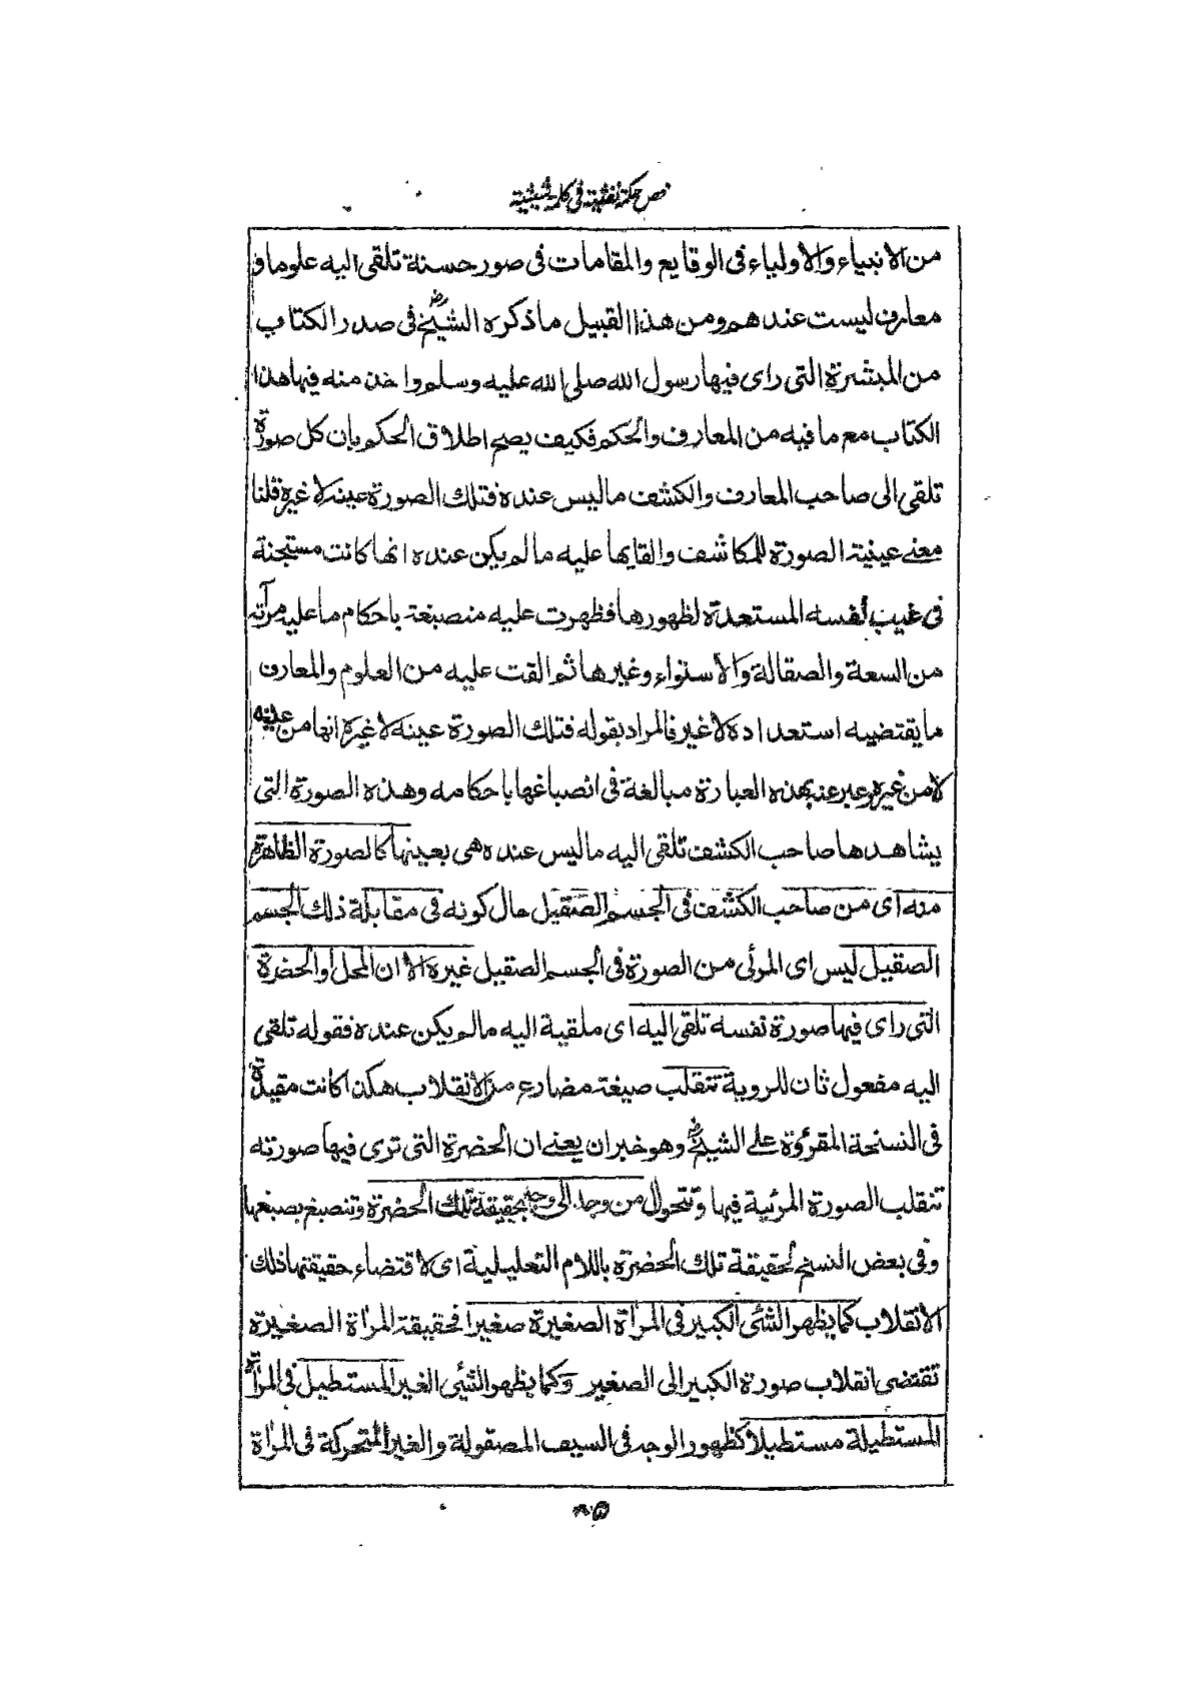 فص حكمة نفثية فى كلمة شيثية
من الانبياء والاولياء فى الوقايع والمقامات فى صور حسنة تلقى اليه علوما و
معارف ليست عندهم ومن هذا القبيل ما ذكره الشيخ رض فى صدر الكتاب
من المبشرة التى راى فيها رسول الله صلى الله عليه وسلم واخذ منه فيها هذا
الكتاب مع ما فيه من المعارف والحكم فكيف يصح اطلاق الحكم بان كل صورة
تلقى الى صاحب المعارف والكشف ما ليس عنده فتلك الصورة عينه لا غيره قلنا
معنے عينية الصورة للمكاشف والقايها عليه ما لم يكن عنده انها كانت مستجنة
فى غيب نفسه المستعدة لظهورها فظهرت عليه منصبغة باحكام ما عليه مرآته
من السعة والصقالة والاستواء وغيرها ثم القت عليه من العلوم والمعارف
ما يقتضيه استعداده لا غير فالمراد بقوله فتلك الصورة عينه لا غيره انها من عينه
لا من غيره وعبر عنه بهذه العبارة مبالغة فى انصباغها باحكامه وهذه الصورة التى
يشاهدها صاحب الكشف تلقى اليه ما ليس عنده هى بعينها كالصورة الظاهرة
منه اى من صاحب الكشف فى الجسم الصقيل حال كونه فى مقابلة ذلك الجسم
الصقيل ليس اى المرئى من الصورة فى الجسم الصقيل غيره الا ان المحل او الحضرة
التى راى فيها صورة نفسه تلقى اليه اى ملقية اليه ما لم يكن عنده فقوله تلقى
اليه مفعول ثان للروية تنقلب صيغة مضارع من الانقلاب هكذا كانت مقيدة
فى النسخة المقروة علے الشيخ رض وهو خبر ان يعنے ان الحضرة التى ترى فيها صورته
تنقلب الصورة المرئية فيها وتتحول من وجه الى وجه بحقيقة تلك الحضرة وتنصبغ بصبغها
وفى بعض النسخ لحقيقة تلك الحضرة باللام التعليلية اى لاقتضاء حقيقتها ذلك
الانقلاب كما يظهر الشئى الكبير فى المرأة الصغيرة صغيرا فحقيقة المرأة الصغيرة
تقتضى انقلاب صورة الكبير الى الصغير وكما يظهر الشئى الغير المستطيل فى المرأة
المستطيلة مستطيلا كظهور الوجه فى السيف المصقولة والغير المتحركة فى المرأة